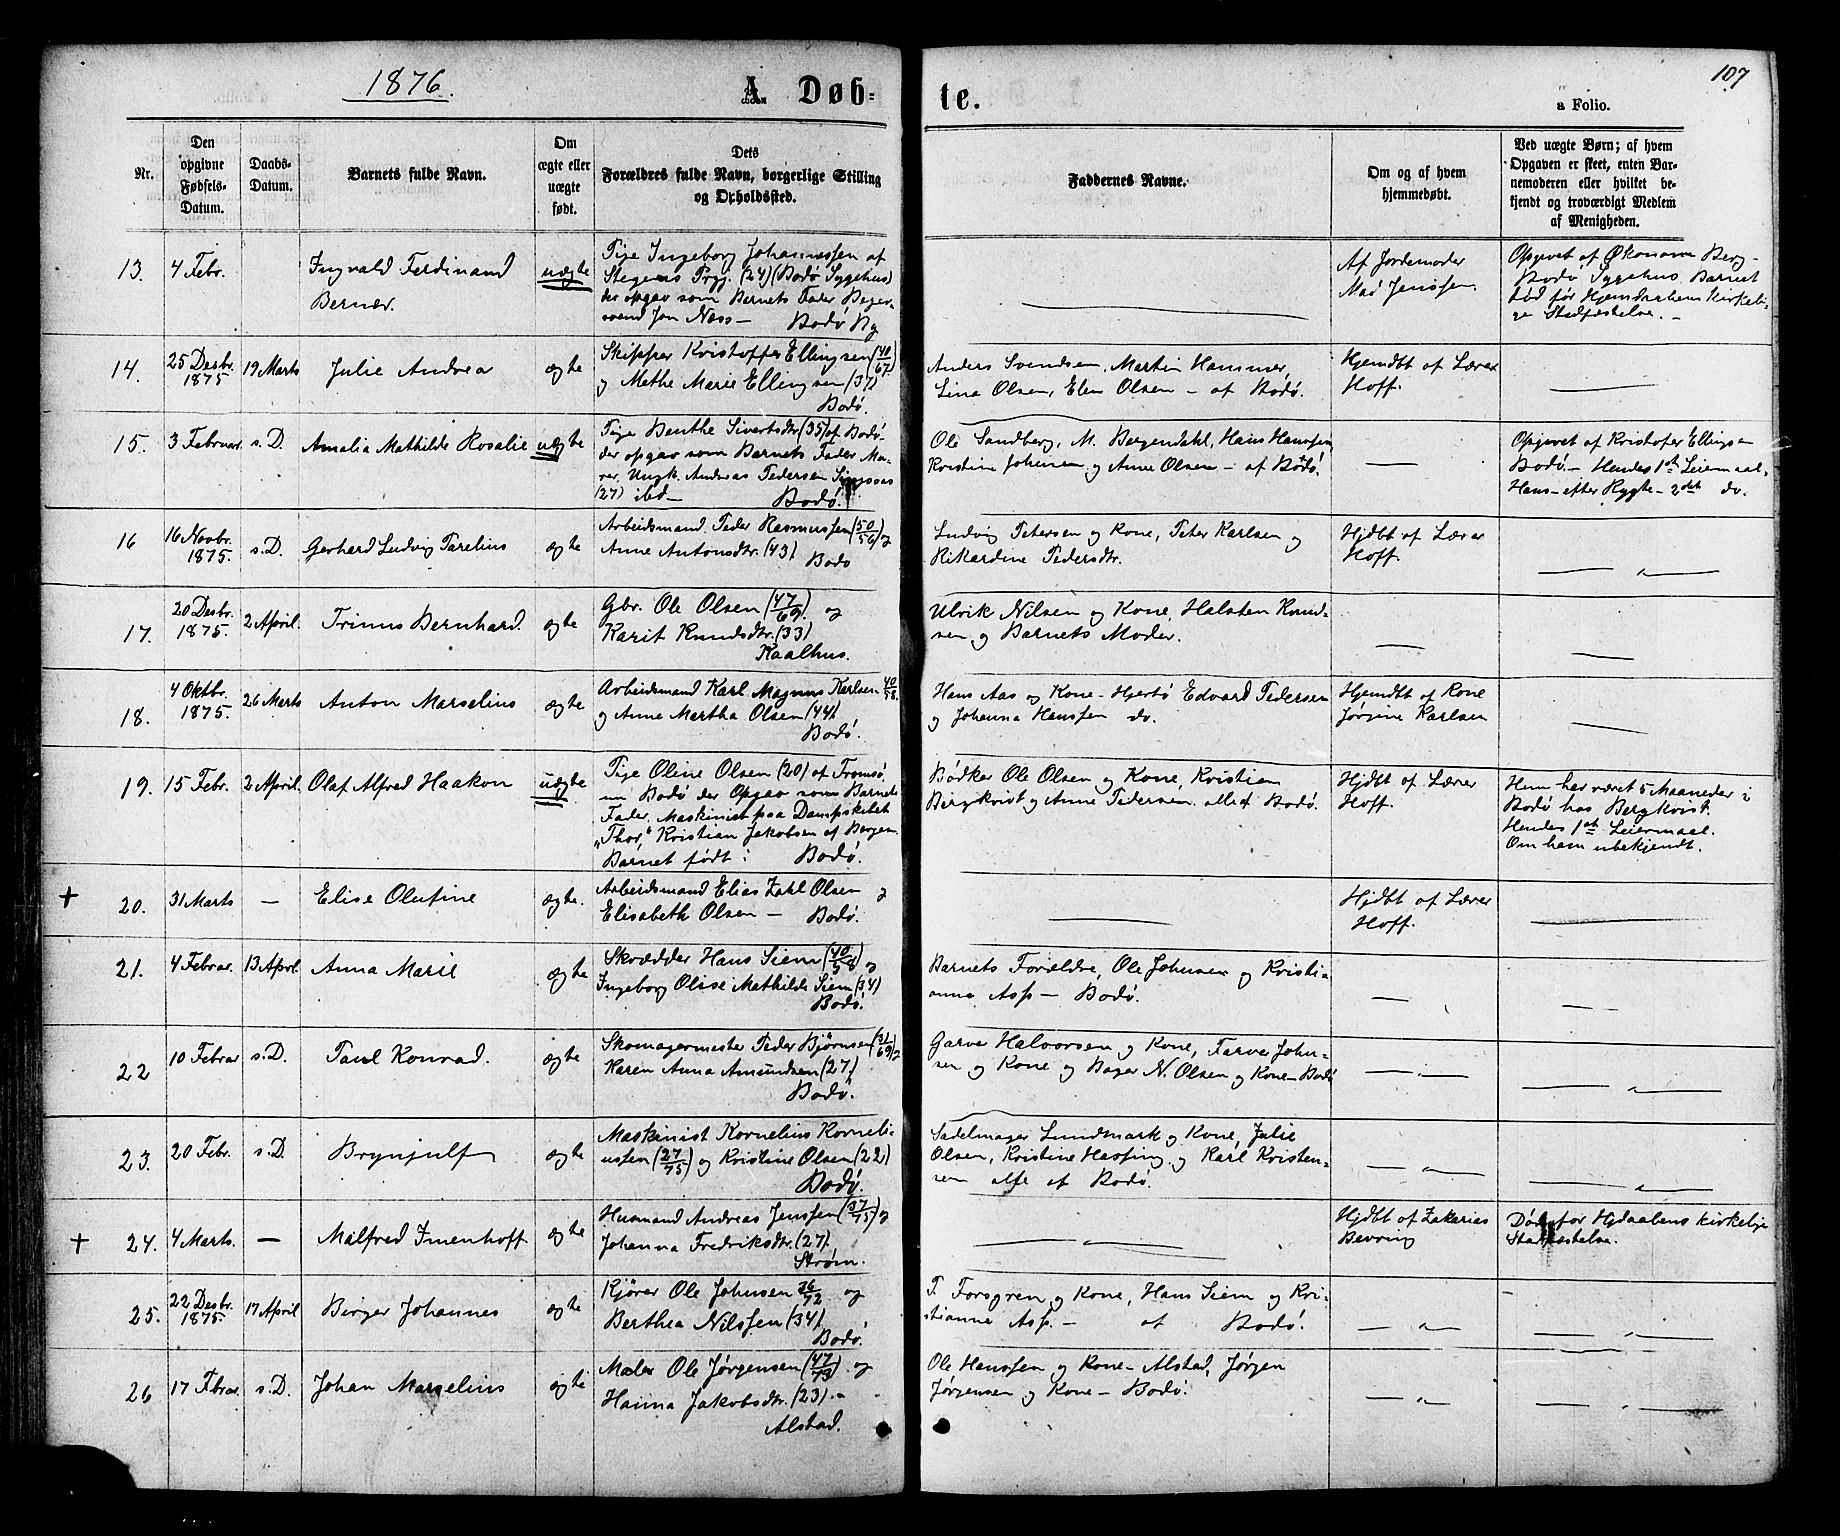 1876.
A Døb-
te.
107
a Folio.
Nr.
Den
opgivne
Fødsels-
Datum.
Daabs-
Datum.
Barnets fulde Navn.
Om
ægte eller
uægte
født.
Dets
Forældres fulde Navn, borgerlige Stilling
og Opholdssted.
Faddernes Navne.
Om og af hvem
hjemmedøbt.
Ved uægte Børn; af hvem
Opgaven er skeet, enten Bar-
nemoderen eller hvilket be-
kjendt og troværdigt Medlem
af Menigheden.
13.
4 Febr.
Ingvald Ferdinand
Bernær.
uægte
Pige Ingeborg Johannessen af
Stegens Prgj. (24) (Bodø Sygehus)
der opgav som Barnets Fader Bager-
svend Jon Næss –
Bodø By
Af Jordemoder
Mad Jenssen
Opgivet af Økonom Berg-
Bodø Sygehus. Barnet
død før Hjemdaabens kirkeli-
ge Stadfæstelse. –
14.
25 Desbr.
1875.
19 Marts
Julie Andrea
ægte
Skipper Kristoffer Ellingsen (40/67)
og Methe Marie Ellingsen (37)
Bodø.
Anders Svendsen, Martin Hammer,
Lina Olsen, Elen Olsen – af Bodø.
Hjemdbt af Lærer
Hoff.
15.
3 Februar
s. D.
Amalia Mathilde Rosalie
uægte
Pige Benthe Sivertsdtr (35) af Bodø-
der opgav som Barnets Fader Mu-
rer, Ungk. Andreas Pedersen
(27) ibd –
Bodø.
Ole Sandberg, M. Bergendahl, Hans Hanssen,
Kristine Johnsen og Anne Olsen – af Bodø.
Opgivet af Kristofer Ellingsen
Bodø – Hendes 1st Leiermaal.
Hans – efter Rygte – 2det do.
16
16 Novbr.
1875.
s. D.
Gerhard Ludvig Parelius
ægte
Arbeidsmand Peder Rasmussen (50/56) og
Anne Antonsdtr. (43)
Bodø
Ludvig Petersen og Kone, Peter Karlsen og
Rikardine Pedersdtr.
Hjdbt af Lærer
Hoff.
— " —
17.
20 Desbr.
1875.
2 April.
Trinus Bernhard.
ægte
Gbr. Ole Olsen (47/69) og
Karit Knudsdtr. (33)
Kaalhus.
Ulrik Nilsen og Kone, Halsten Knud-
sen og Barnets Moder.
18.
4 Oktbr.
1875.
26 Marts
Anton Marselius
ægte
Arbeidsmand Karl Magnus Karlsen 40/58.
og Anne Martha Olsen (44)
Bodø.
Hans Aas og Kone – Hjertø Edvard Pedersen
og Johanna Hanssen do.
Hjemdbt af Kone
Jørgine Karlsen
19.
15 Febr.
2 April.
Olaf Alfred Haakon
uægte
Pige Oline Olsen (20) af Tromsø,
nu Bodø der Opgav som Barnets
Fader, Maskinist paa Dampskibet
„Thor“, Kristian Jakobsen af Bergen
Barnet født i Bodø.
Bødker Ole Olsen og Kone, Kristian
Bergkvist og Anne Pedersen. alle af Bodø.
Hjdbt af Lærer
Hoff.
Hun har været 5 Maaneder i
Bodø hos Bergkvist.
Hendes 1st Leiermaal.
Om ham ubekjendt.
+
20.
31 Marts
–
Elise Olufine
ægte.
Arbeidsmand Elias Zakl Olsen og
Elisabeth Olsen –
Bodø.
Hjdbt af Lærer
Hoff.
21.
4 Februar.
13 April.
Anna Marie
ægte
Skrædder Hans Siem (40/58) og
Ingeborg Olise Mathilde Siem (34)
Bodø.
Barnets Forældre, Ole Johnsen og Kristi-
anna Asp – Bodø.
22
10 Februar
s. D.
Paul Konrad.
ægte
Skomagermester Peder Bjørnsen (31/69) og
Karen Anna Amundsen (27)
Bodø.
Garver Halvorsen og Kone, Farver John-
sen og Kone og Bager N. Olsen og Kone – Bodø
— " —
23.
20 Febr.
s. D.
Brynjulf
ægte
Maskinist Kornelius Korneli-
ussen (27/75) og Kristine Olsen (22)
Bodø.
Sadelmager Lundmark og Kone, Julie
Olsen, Kristine Hassing og Karl Kristen-
sen alle af Bodø.
— " —
— " —
+
24.
4 Marts.
–
Milfred Imenhoff
ægte
Husmand Andreas Jenssen (37/75) og
Johanna Fredriksdtr. (27)
Strøm.
— " —
Hjdbt af Zakarias
Bevring
Død før Hjdaabens kirkelige
Stadfæstelse.
25.
22 Desbr.
1875.
17 April
Birger Johannes
ægte
Kjører Ole Johnsen 36/72 og
Berthea Nilssen (34).
Bodø.
F. Forsgren og Kone, Hans Siem og Kri-
stianne Asp. – af Bodø.
— " —
— " —
26
17 Februar
s. D.
Johan Marselius
ægte
Maler Ole Jørgensen (47/73) og
Hanna Jakobsdtr. (23). –
Alstad.
Ole Hanssen og Kone – Alstad, Jørgen
Jørgensen og Kone – Bodø.
— " —
— " —